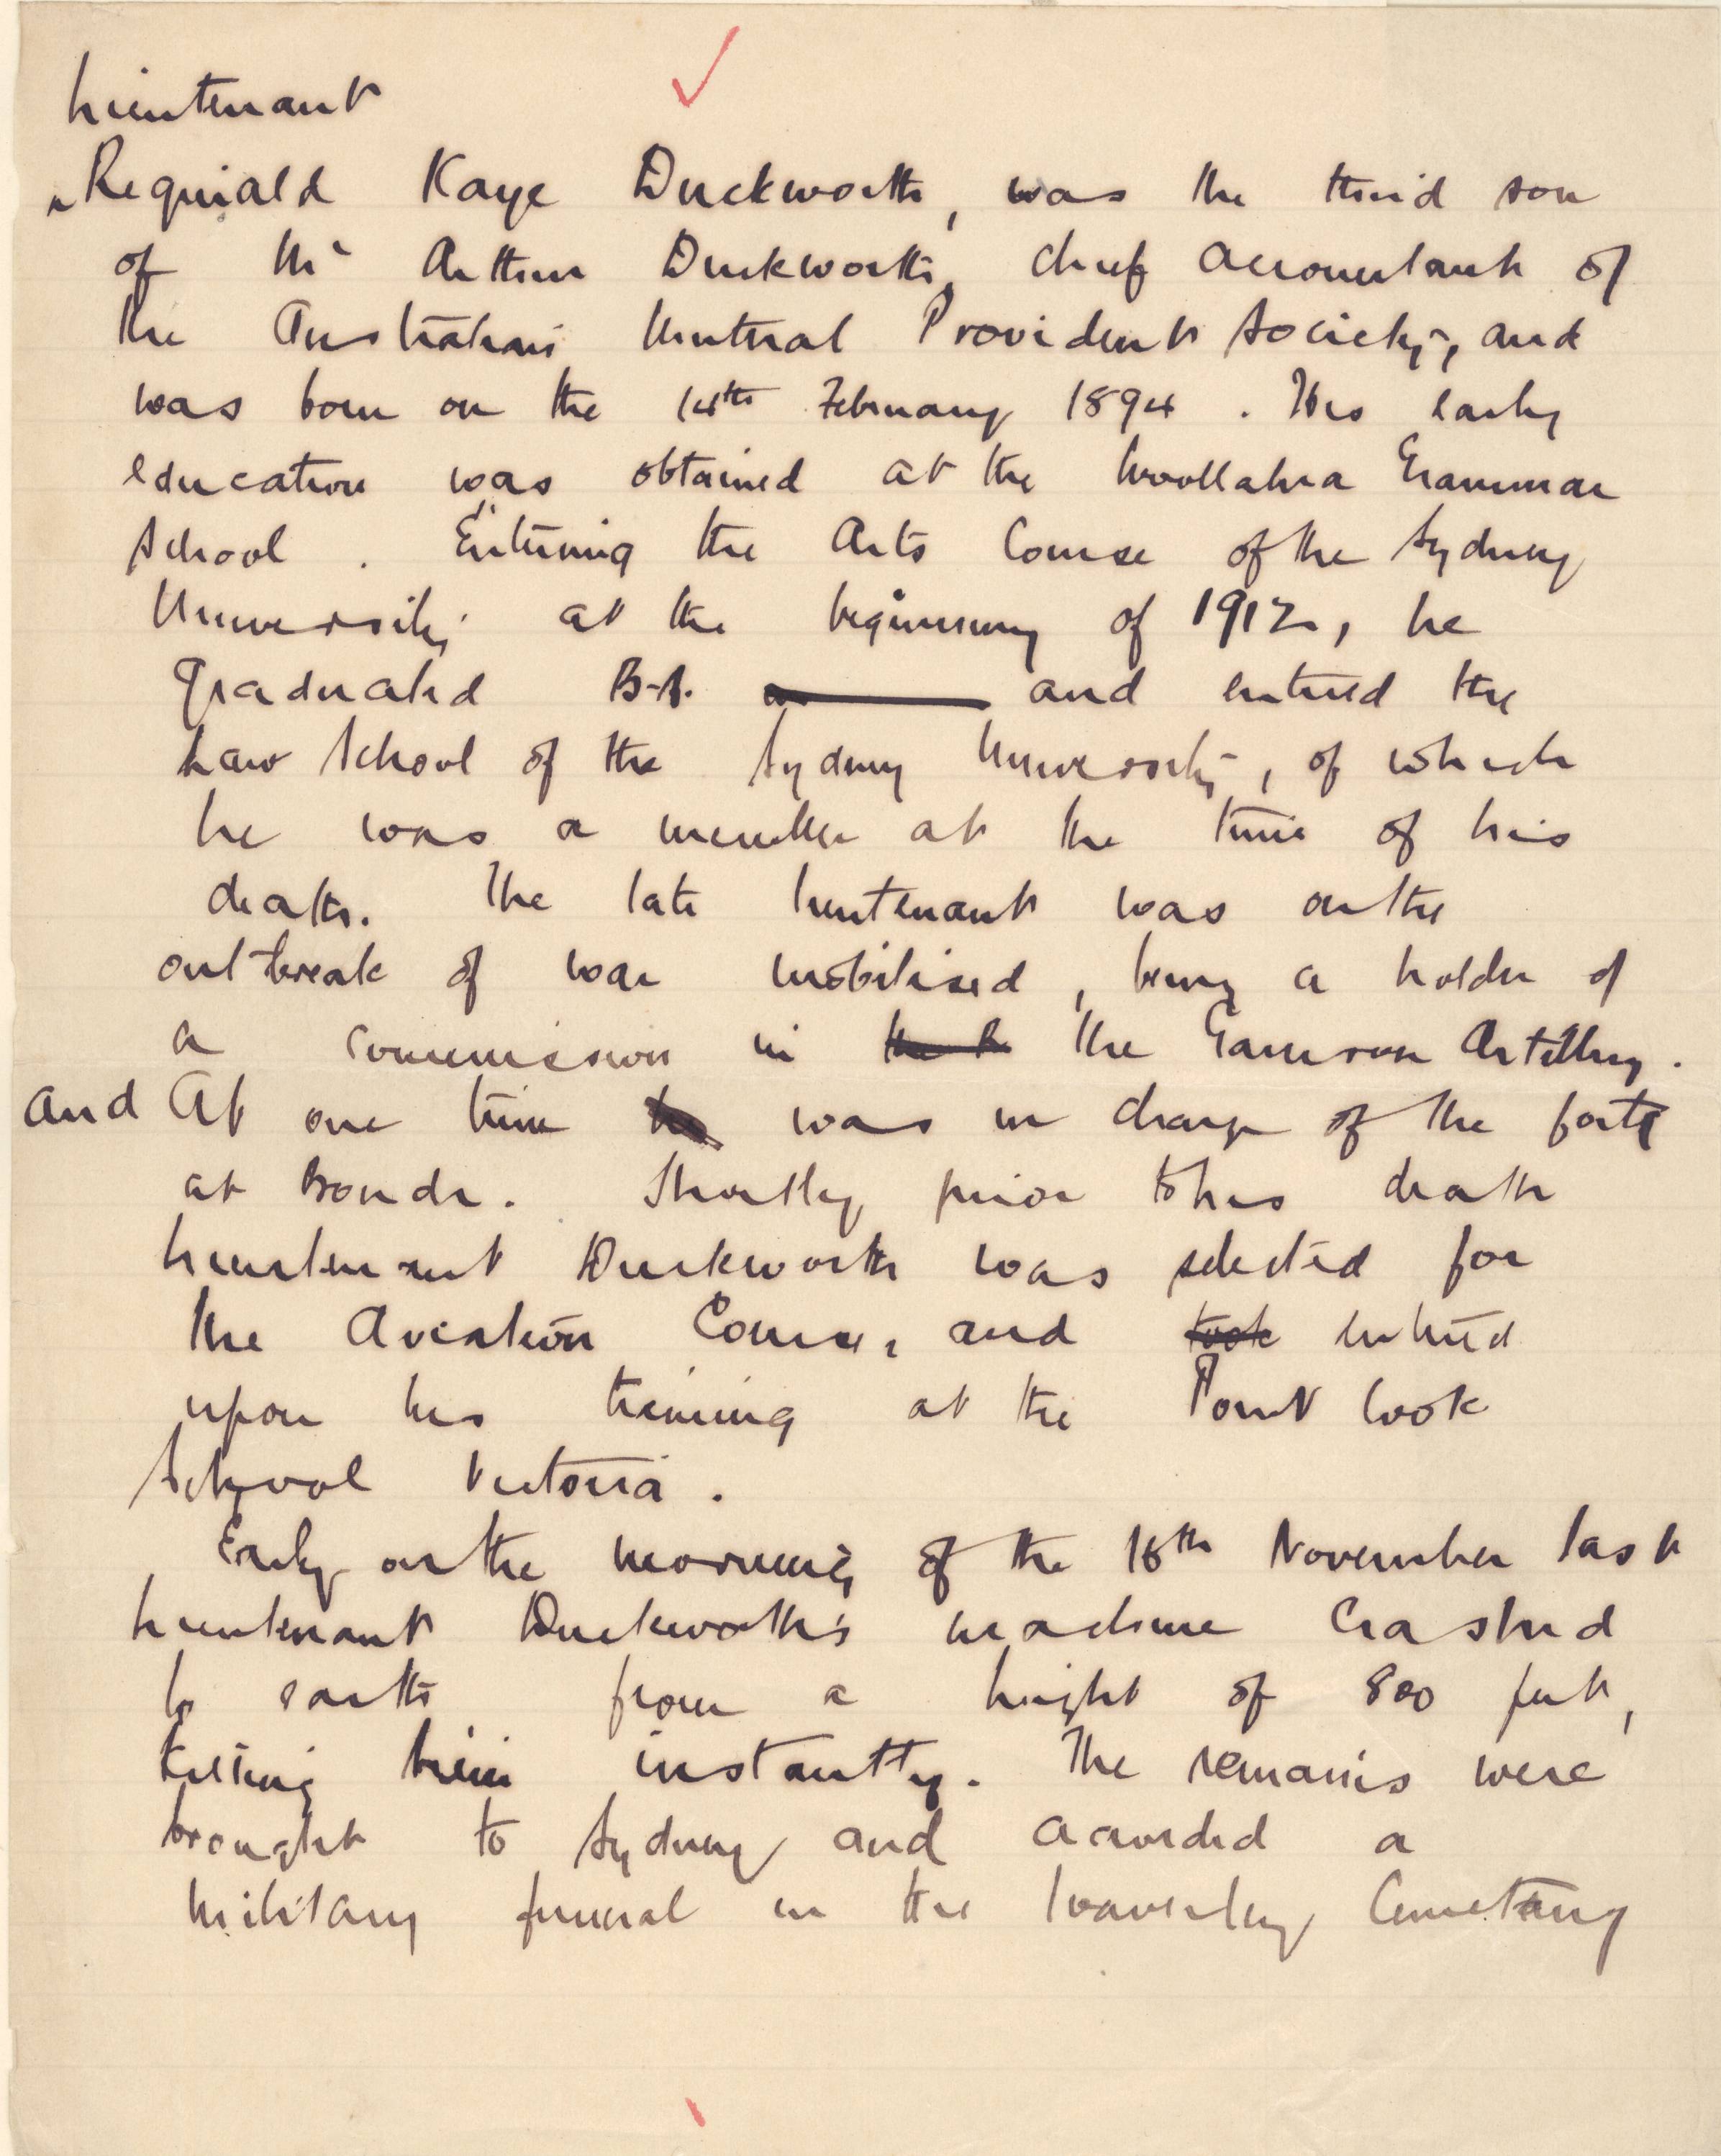 Lieutenant
Reginald Kaye Duckworth, was the third son
of Mr Arthur Duckworth, chief accountant of
the Australian Mutual Provident Society, and
was born on the 14th February 1894. His early
education was obtained at the Woollahra Grammar
School. Entering the Arts Course of the Sydney
University at the beginning of 1912, he
graduated B.A. and entered the
Law School of the Sydney University, of which
he was a member at the time of his
death. The late lieutenant was on the
outbreak of war mobilised, being a holder of
a commission in the Garrison Artillery.
and At one time was in charge of the forts
at Bondi. Shortly prior to his death
Lieutenant Duckworth was selected for
the Aviation Course, and took entered
upon his training at the Point Cook
School Victoria.
Early on the morning of the 16th November last
Lieutenant Duckworth's machine crashed
to earth from a height of 800 feet,
killing him instantly. The remains were
brought to Sydney and accorded a
military funeral in the Waverley Cemetery